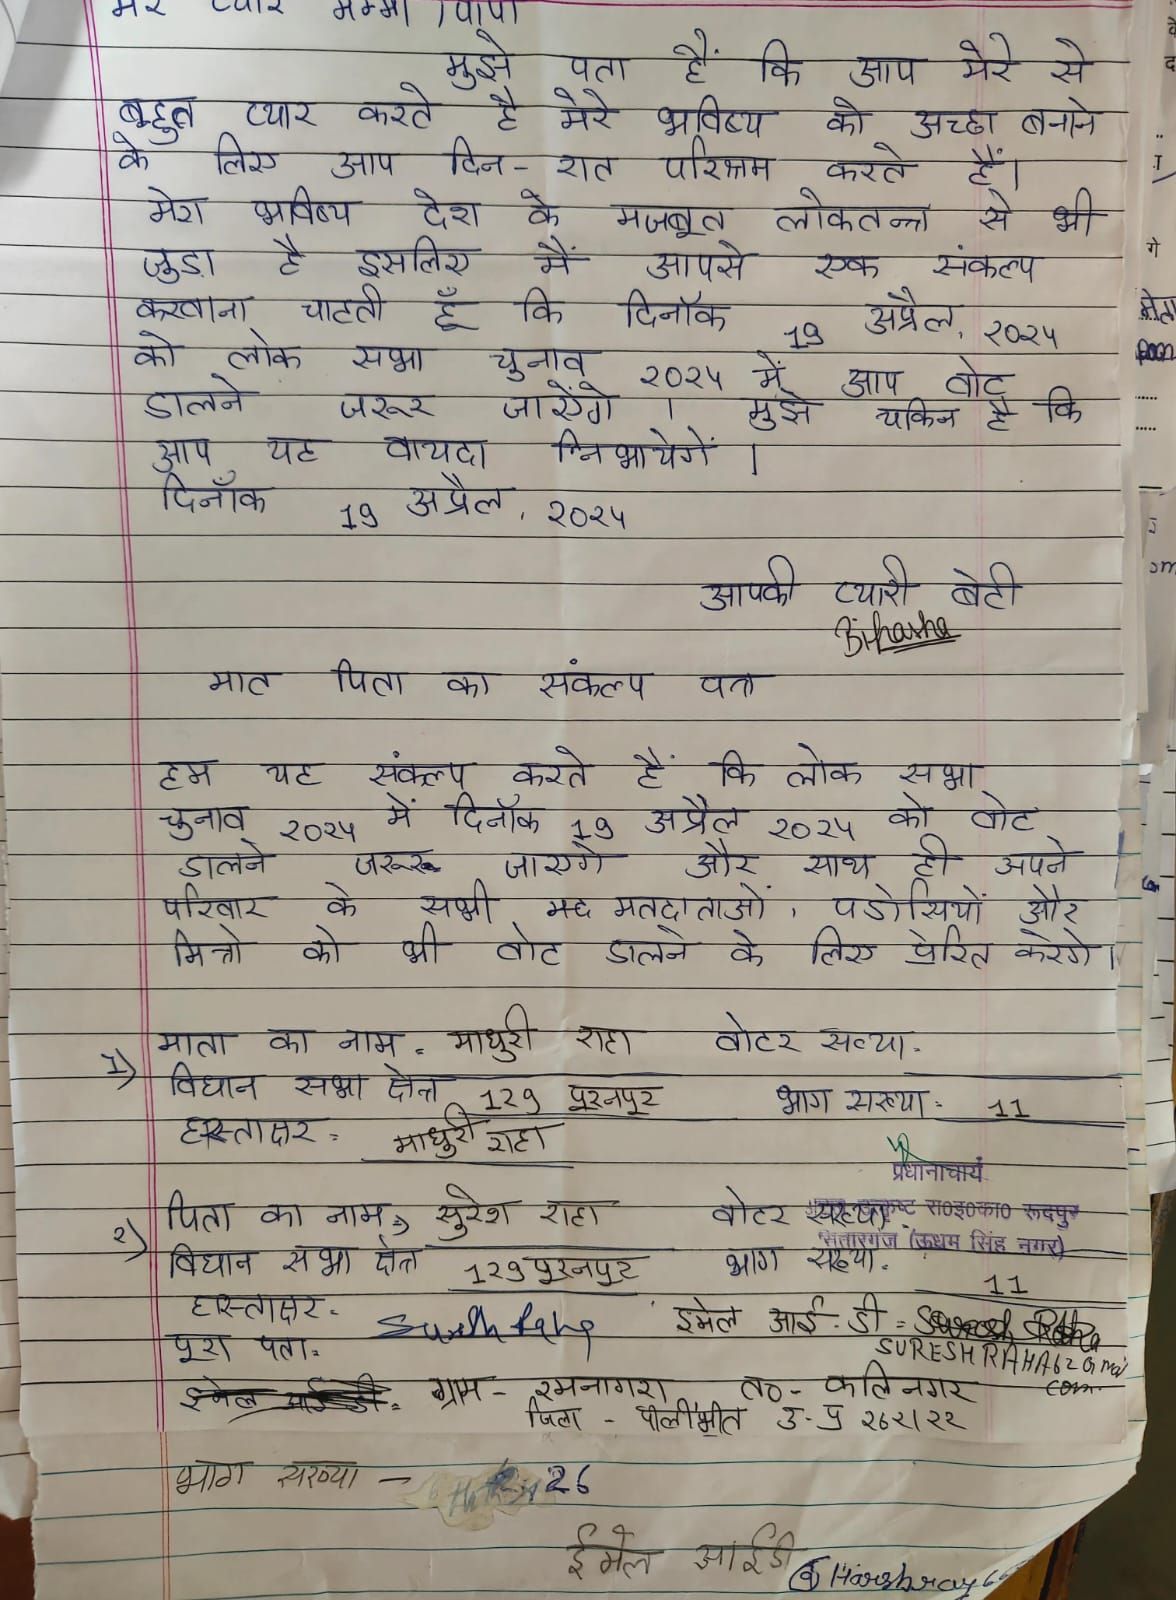 मेरे प्यारे मम्मी / पापा
मुझे पता हैं कि आप मेरे से
बहुत प्यार करते है मेरे भविष्य को अच्छा बनाने
के लिए आप दिन - रात परिश्रम करते हैं।
मेरा भविष्य देश के मजबूत लोकतन्त्र से भी
जुडा है इसलिए मैं आपसे एक संकल्प
करवाना चाहती हूँ कि दिनाँक 19 अप्रैल, २०२५
को लोक सभा चुनाव २०२५ में आप वोट
डालने जरूर जाऐंगे । मुझे यकिन है कि
आप यह वायदा निभायेगें ।
दिनाँक 19 अप्रैल, २०२५
आपकी प्यारी बेटी
मात पिता का संकल्प पत्र
हम यह संकल्प करते हैं कि लोक सभा
चुनाव २०२५ में दिनाँक 19 अप्रैल २०२५ को वोट
डालने जरूर जाएगे और साथ ही अपने
परिवार के सभी मतदाताओं, पडोसियों और
मित्रो को भी वोट डालने के लिए प्रेरित करेगे।
1) माता का नाम = माधुरी राहा वोटर सख्या =
विधान सभा क्षेत्र 129 पूरनपूर भाग सख्या = 11
हास्ताक्षर = माधुरी राहा
प्रधानाचार्य
रा०इ०का० रूद्रपुर
सितारगंज (ऊधम सिंह नगर)
२) पिता का नाम => सुरेश राहा वोटर सख्या
विधान सभा क्षेत्र 129 पूरनपूर भाग सख्या = 11
हास्ताक्षर = इमेल आई-डी =
SURESHRAHA62 G mai
com
पूरा पता =
ग्राम - रमनागरा त० - कलिनगर
जिला - पीलीभीत उ-प्र २६२१२२
भाग सख्या - 26
ईमेल आईडी